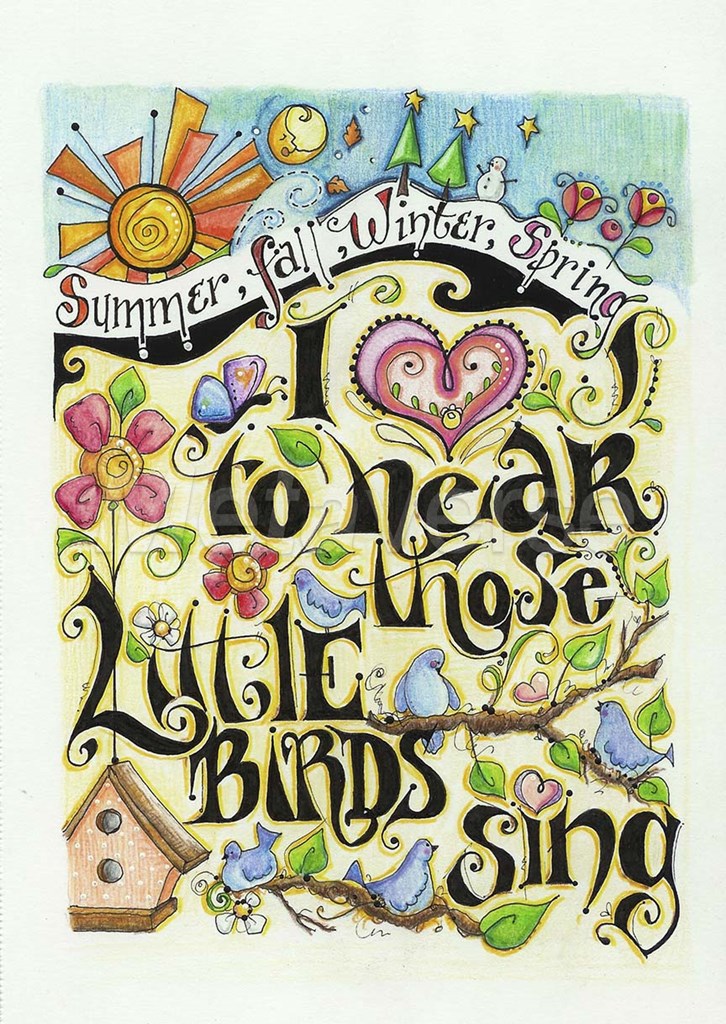 Summer, Fall, Winter, Spring
I
to hear
those
Little
BIRDS
sing
Metaverse